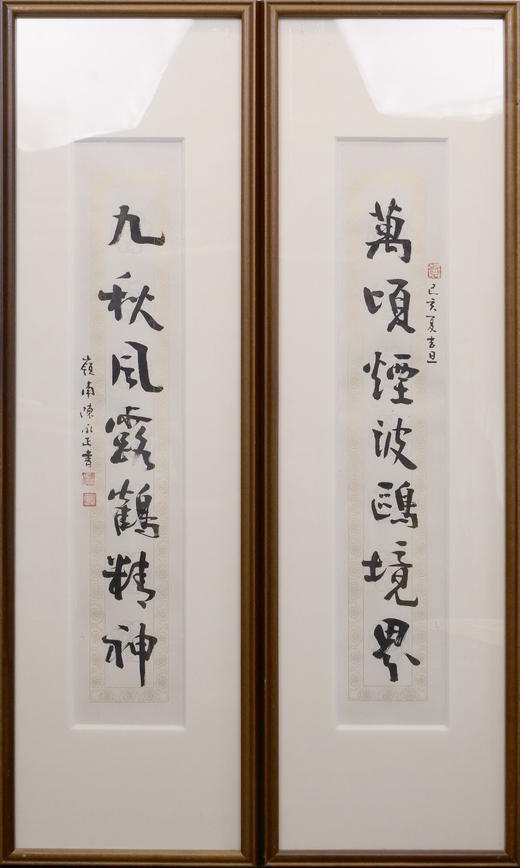 萬頃煙波鷗境界
己亥夏吉旦
九秋風露鶴精神
嶺南陳永正書